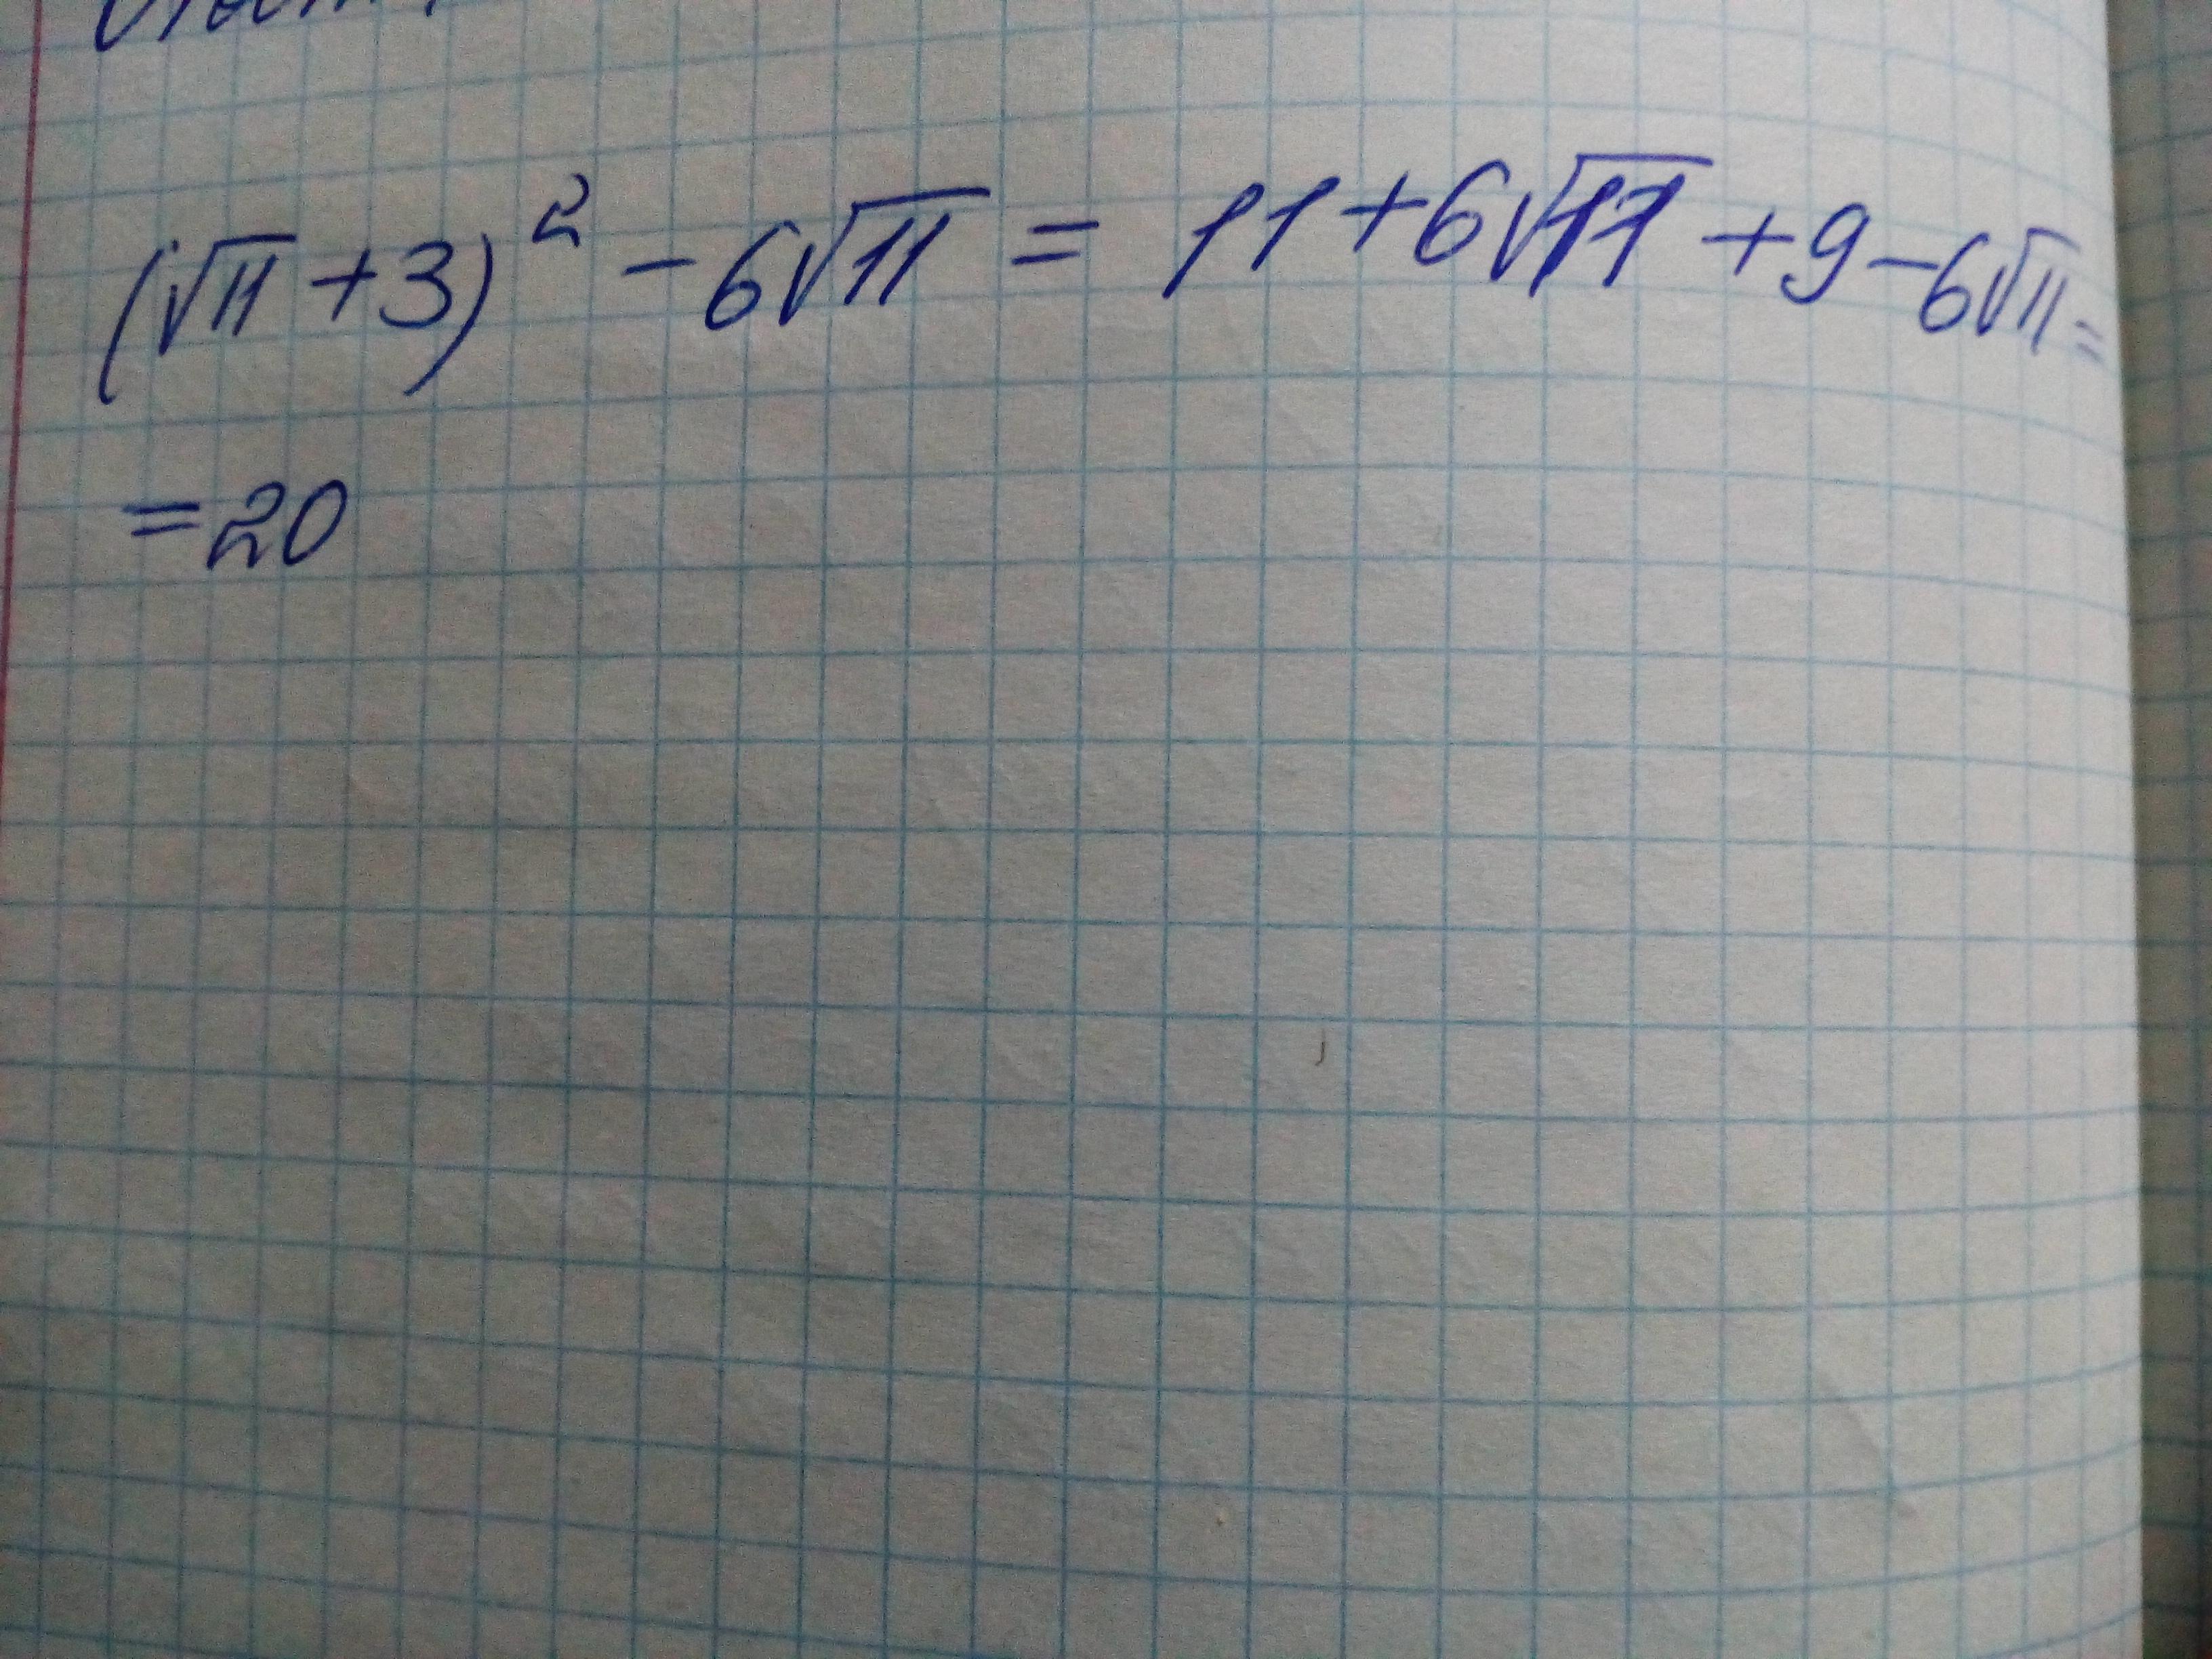 (√11 + 3)² - 6√11 = 11 + 6√11 + 9 - 6√11 =
= 20